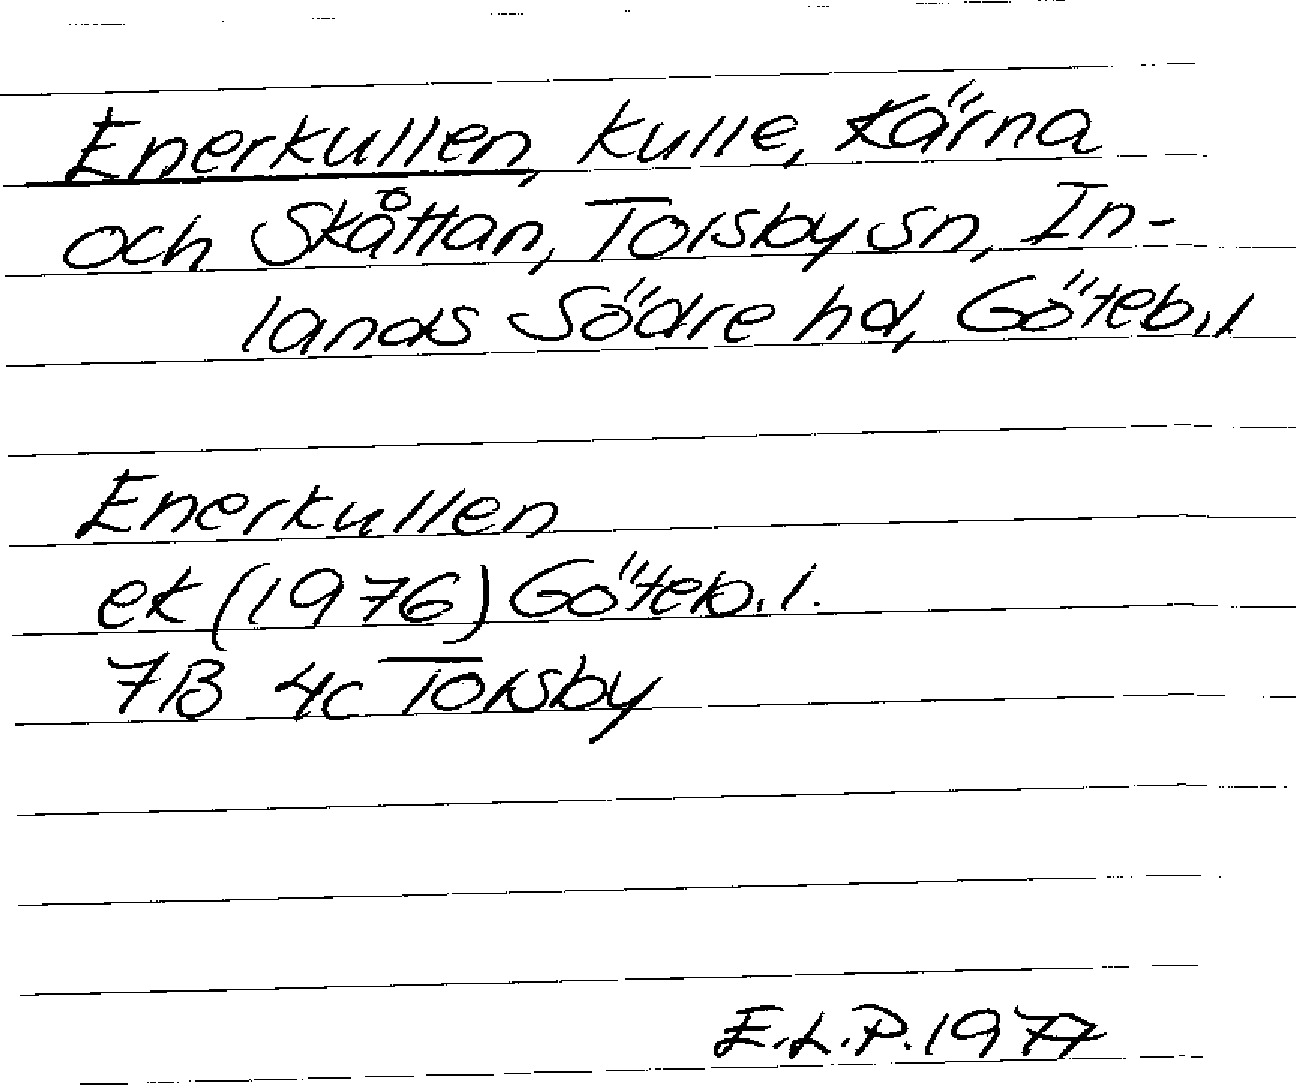 Enerkullen, kulle, Kärna
och Skåttan, Torsby sn, In-
lands Södre hd, Göteb.l.
Enerkullen
ek (1976) Göteb.l.
7B 4c Torsby
E.L.P. 1977